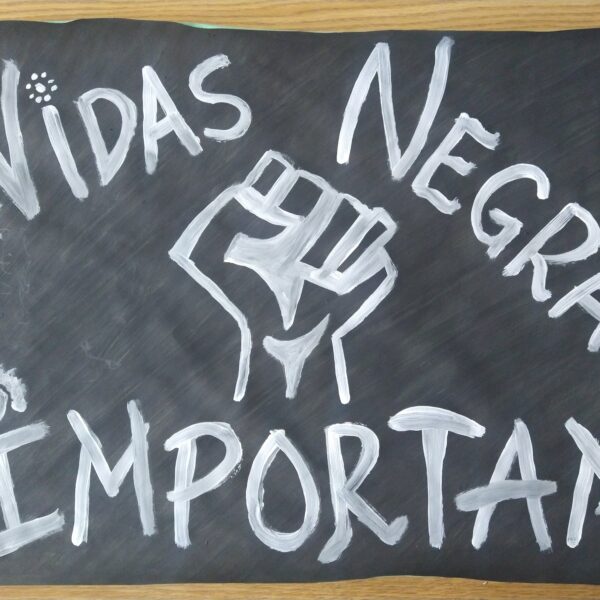 VIDAS NEGRA
IMPORTAM